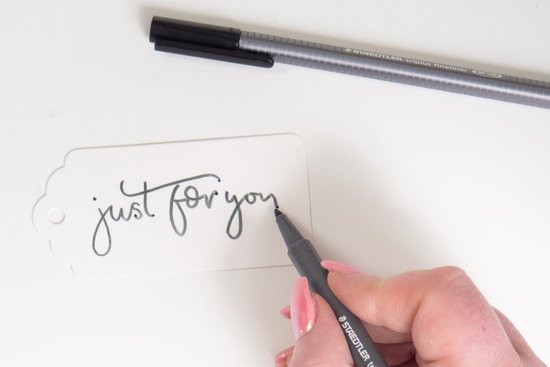 STAEDTLER triplus fineliner
just for you
STAEDTLER